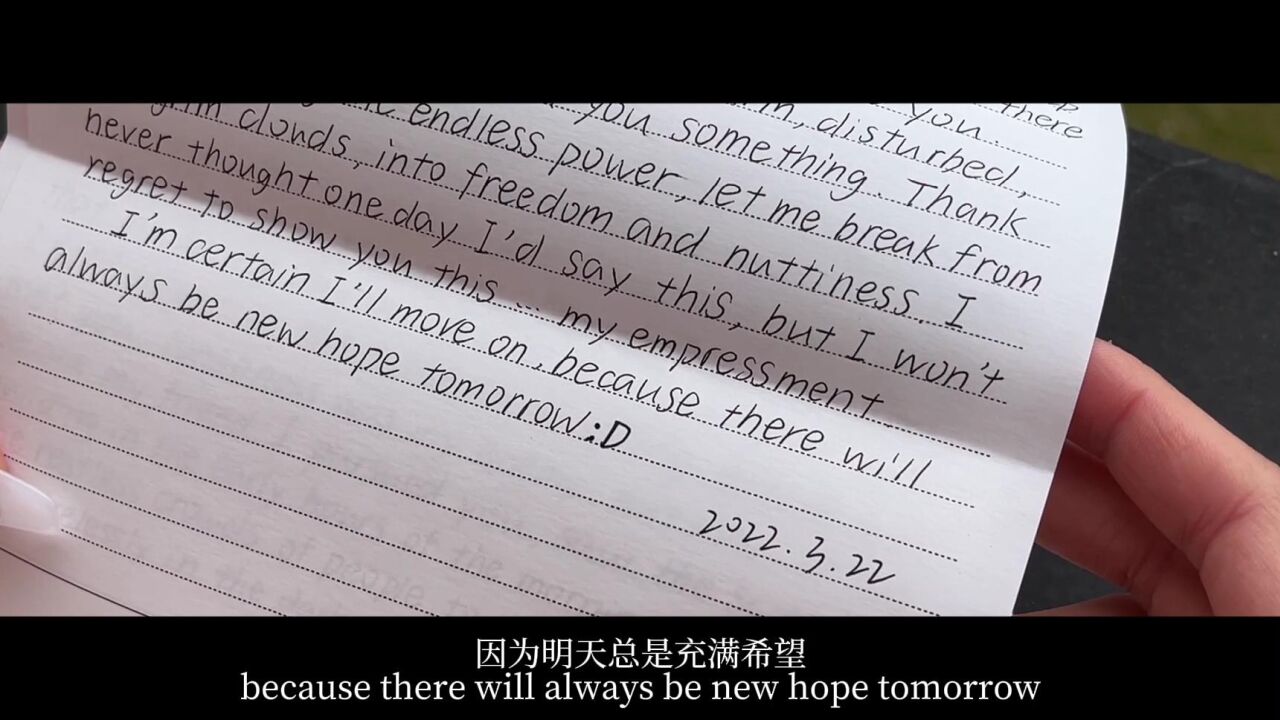 there
you.
disturbed,
you something. Thank
endless power, let me break from
grim clouds, into freedom and nuttiness. I
never thought one day I'd say this, but I won't
regret to show you this ... my empressment.
I'm certain I'll move on, because there will
always be new hope tomorrow :D
2022.3.22
因为明天总是充满希望
because there will always be new hope tomorrow